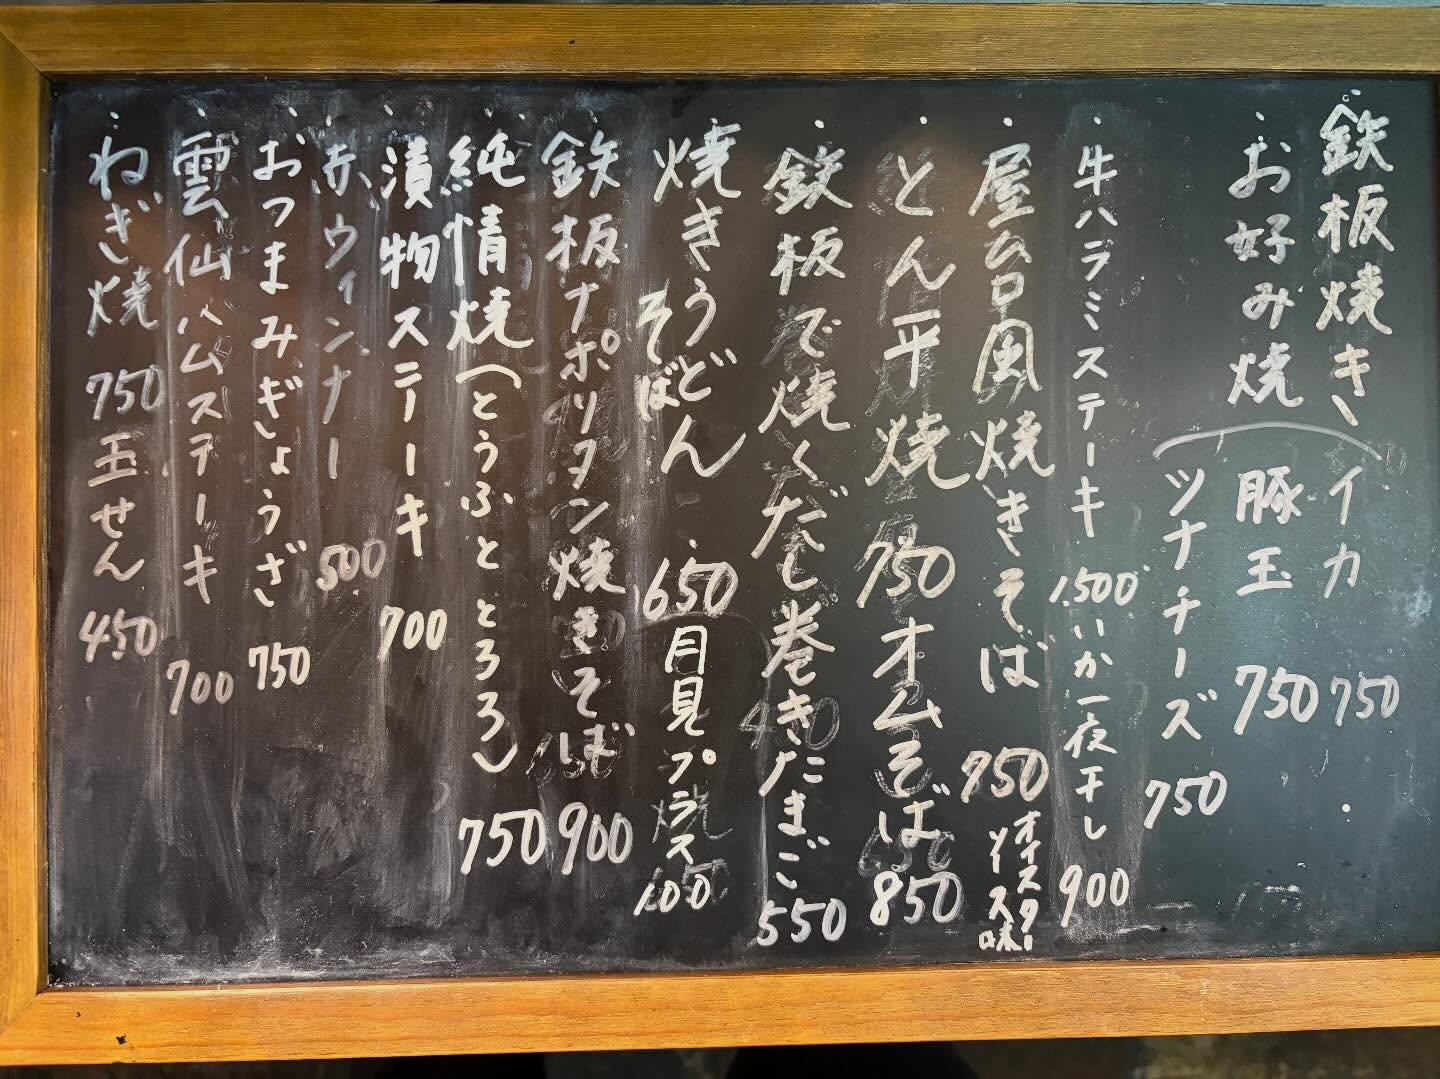 ・鉄板焼き
イカ 750
・お好み焼
豚玉 750
ツナチーズ 750
・牛ハラミステーキ 1,500
いか一夜干し 900
・屋台風焼きそば 750
オイスターソース味
・とん平焼 750
オムそば 850
・鉄板で焼くだし巻きたまご 550
・焼きうどん
そば
650
月見プラス 100
・鉄板ナポリタン焼きそば 900
・純情焼(とうふととろろ) 750
・漬物ステーキ 700
・赤ウィンナー 500
・おつまみぎょうざ 750
・雲仙ハムステーキ 700
・ねぎ焼 750
玉せん 450